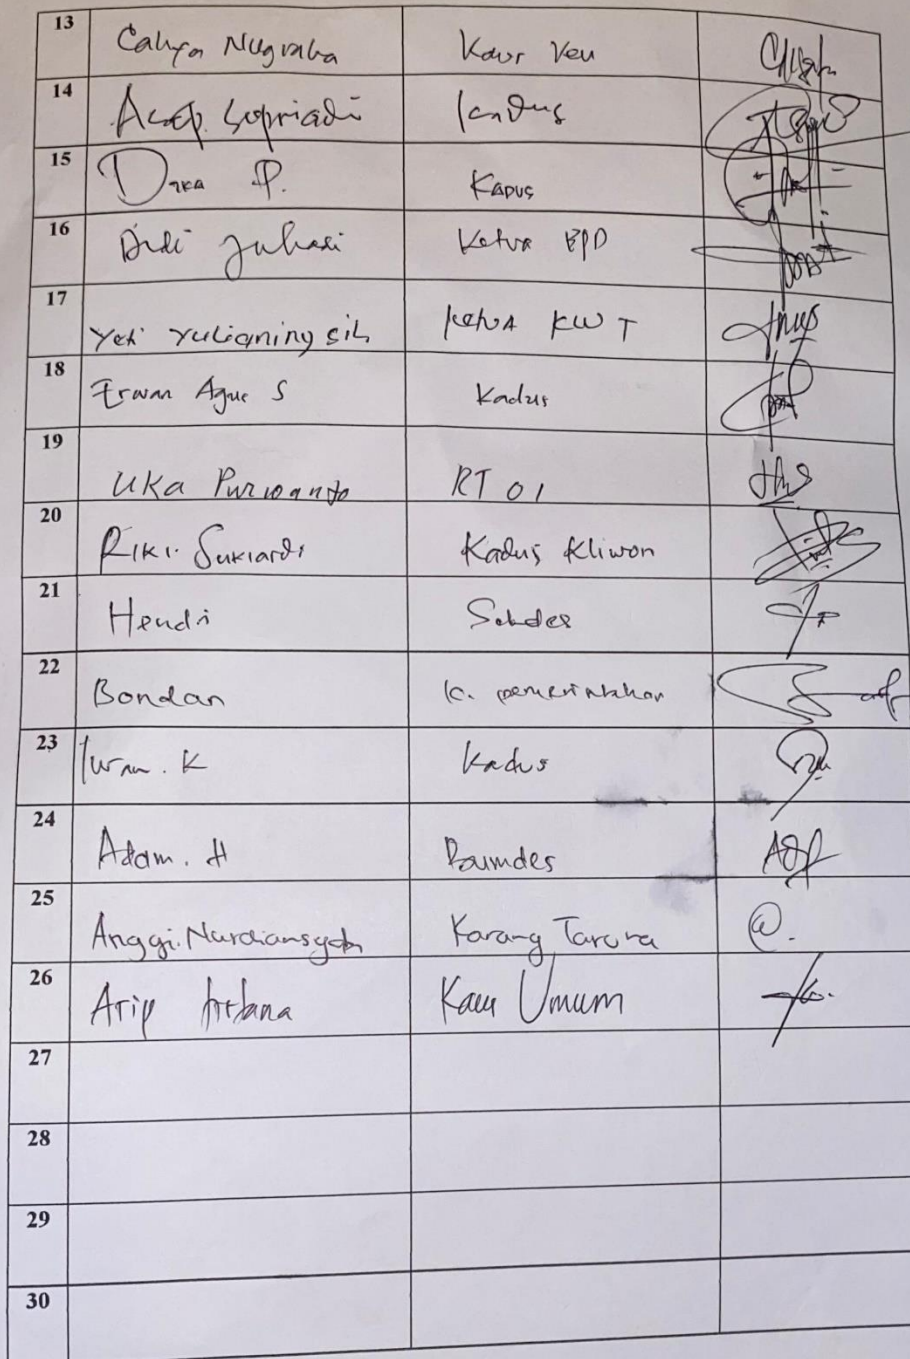 13 Cahya Nugraha Kaur Keu
14 Acep Sopriadi Kadus
15 Daka P. Kadus
16 Didi Juhadi Ketua BPD
17 Yeti Yulianingsih Ketua KWT
18 Erwan Agus S Kadus
19 Uka Purwanto RT 01
20 Riki. Sukiardi Kadus Kliwon
21 Hendri Sekdes
22 Bondan K. pemerintahan
23 Iwan. K Kadus
24 Adam. H Bumdes
25 Anggi. Nurdiansyah Karang Taruna
26 Arip Kaur Umum
27
28
29
30